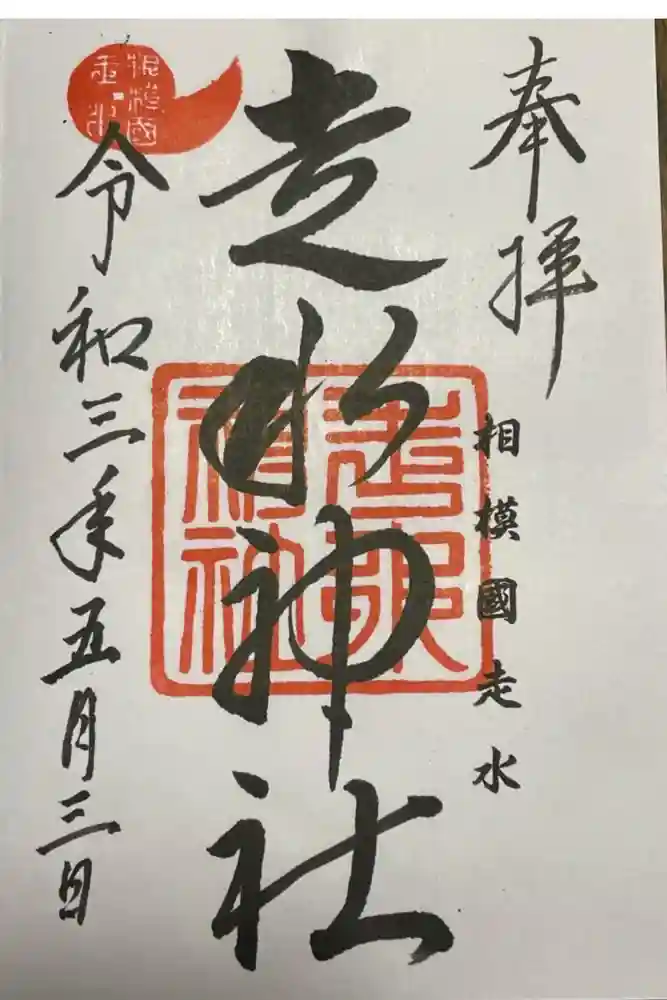 奉拝
相模國走水
走水神社
走水
神社
相模國
走水
令和三年五月三日